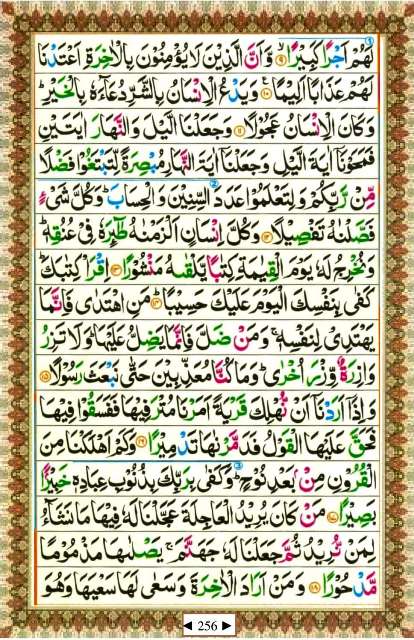 لَهُمْ اَجْرًا كَبِيْرًا ۙ﴿۹﴾ وَّاَنَّ الَّذِيْنَ لَا يُؤْمِنُوْنَ بِالْاٰخِرَةِ اَعْتَدْنَا
لَهُمْ عَذَابًا اَلِيْمًا ﴿۱۰﴾ وَيَدْعُ الْاِنْسَانُ بِالشَّرِّ دُعَآءَهٗ بِالْخَيْرِ ؕ
وَكَانَ الْاِنْسَانُ عَجُوْلًا ﴿۱۱﴾ وَجَعَلْنَا الَّيْلَ وَالنَّهَارَ اٰيَتَيْنِ
فَمَحَوْنَاۤ اٰيَةَ الَّيْلِ وَجَعَلْنَاۤ اٰيَةَ النَّهَارِ مُبْصِرَةً لِّتَبْتَغُوْا فَضْلًا
مِّنْ رَّبِّكُمْ وَلِتَعْلَمُوْا عَدَدَ السِّنِيْنَ وَالْحِسَابَ ؕ وَكُلَّ شَیْءٍ
فَصَّلْنٰهُ تَفْصِيْلًا ﴿۱۲﴾ وَكُلَّ اِنْسَانٍ اَلْزَمْنٰهُ طٰٓئِرَهٗ فِیْ عُنُقِهٖ ؕ
وَنُخْرِجُ لَهٗ يَوْمَ الْقِيٰمَةِ كِتٰبًا يَّلْقٰىهُ مَنْشُوْرًا ﴿۱۳﴾ اِقْرَاْ كِتٰبَكَ ؕ
كَفٰی بِنَفْسِكَ الْيَوْمَ عَلَيْكَ حَسِيْبًا ﴿۱۴﴾ مَنِ اهْتَدٰی فَاِنَّمَا
يَهْتَدِیْ لِنَفْسِهٖ ۚ وَمَنْ ضَلَّ فَاِنَّمَا يَضِلُّ عَلَيْهَا ؕ وَلَا تَزِرُ
وَازِرَةٌ وِّزْرَ اُخْرٰی ؕ وَمَا كُنَّا مُعَذِّبِيْنَ حَتّٰی نَبْعَثَ رَسُوْلًا ﴿۱۵﴾
وَاِذَاۤ اَرَدْنَاۤ اَنْ نُّهْلِكَ قَرْيَةً اَمَرْنَا مُتْرَفِيْهَا فَفَسَقُوْا فِيْهَا
فَحَقَّ عَلَيْهَا الْقَوْلُ فَدَمَّرْنٰهَا تَدْمِيْرًا ﴿۱۶﴾ وَكَمْ اَهْلَكْنَا مِنَ
الْقُرُوْنِ مِنْۢ بَعْدِ نُوْحٍ ؕ وَكَفٰی بِرَبِّكَ بِذُنُوْبِ عِبَادِهٖ خَبِيْرًۢا
بَصِيْرًا ﴿۱۷﴾ مَنْ كَانَ يُرِيْدُ الْعَاجِلَةَ عَجَّلْنَا لَهٗ فِيْهَا مَا نَشَآءُ
لِمَنْ نُّرِيْدُ ثُمَّ جَعَلْنَا لَهٗ جَهَنَّمَ ۚ يَصْلٰىهَا مَذْمُوْمًا
مَّدْحُوْرًا ﴿۱۸﴾ وَمَنْ اَرَادَ الْاٰخِرَةَ وَسَعٰی لَهَا سَعْيَهَا وَهُوَ
◄ 256 ►